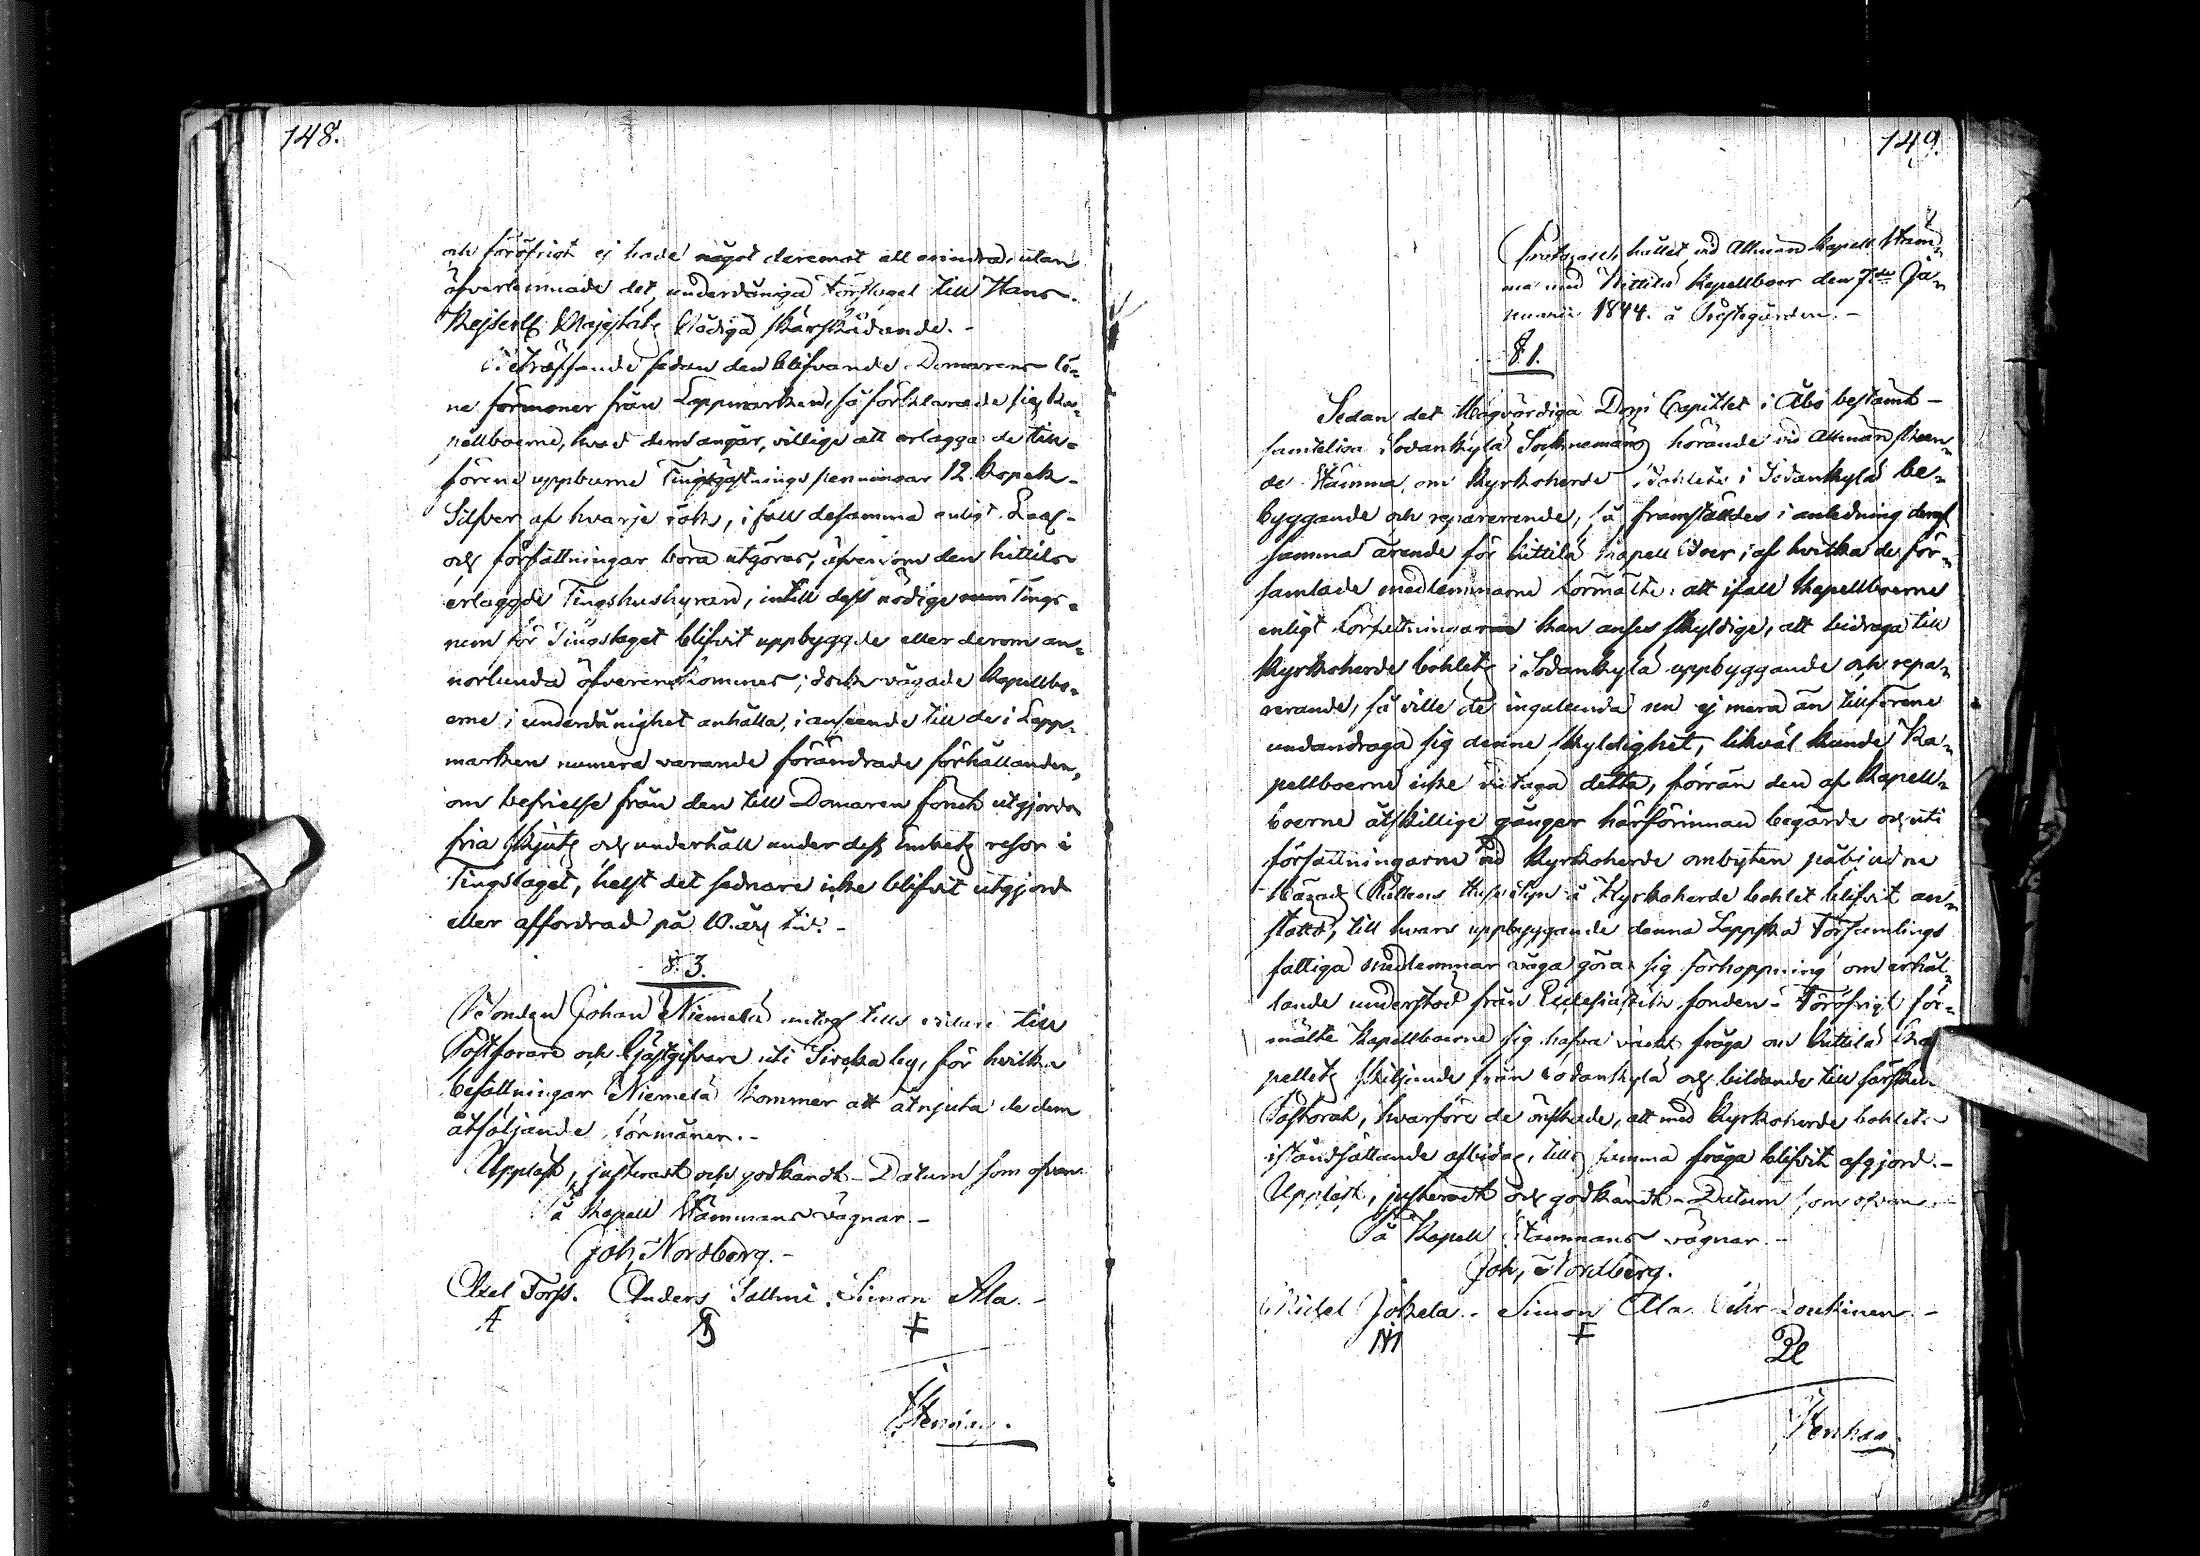 148.
och föröfrigt ej hade något deremot att ovindra, utan
öfverlemnade det underdåniga förslaget till Hans
Kejserl: Majestäts Nådiga skärskådande. -
Beträffande sedan den blifvande Domarens lö-
ne förmoner från Lappmarken, så förklarade sig Ka-
pellboerne, hvad dem angår, villige att erlägga de till-
förene uppburne Tingsgästnings penningar 12. kopek
Silfver af hvarje rök, i fall desamma enligt Lag
och författningar böra utgöras, äfvensom den hittils
erlaggde Tingshushyran, intill dess nödige rum Tings-
rum för Tingslaget blifvit uppbyggde eller derom an-
norlunda öfverenskommes; dock vågade Kapellbo-
erne i underdånighet anhålla, i anseende till de i Lapp-
marken numera varande förändrade förhållanden,
om befrielse från den till Domaren förut utgjorda
fria skjuts och underhåll under dess Embets resor i
Tingslaget, helst det sednare icke blifvit utgjord
eller affordrad på 10. års tid. -
§. 3.
Bonden Johan Niemelä antogs tills vidare till
Postförare och Gjästgifvare uti Sirkka by, för hvilka
befattningar Niemelä kommer att åtnjuta de dem
åtföljande förmåner. -
Uppläst, justeradt och godkändt - Datum som ofvan
På Kapell Stämmans vägnar -
Joh, Nordberg. -
Axel Forss. Anders Salmi. Simon Ala. -
149.
Protocoll hållet vid Allmän Kapell Stäm-
ma med Kittilä Kapellboer den 7de Ja-
nuarii 1844. å Prestegården. -
§ 1.
Sedan det Högvördiga Dom Capitlet i Åbo bestämt
samtelige Sodankylä Socknemäns hörande vid Allmän Socken-
de Stämma, om Kyrkoherde bohlets i Sodankylä be-
byggande och reparerande, så framställdes i anledning deraf
samma ärende för Kittilä Kapell Boer, af hvilka de för-
samlade medlemmarne förmälte: att ifall Kapellboerne
enligt författningarne kan anses skyldige, att bidraga till
Kyrkoherde bohlets i Sodankylä uppbyggande och repa-
rerande, så ville de ingalunda nu ej mera än tillförene
undandraga sig denne skyldighet, likväl kunde Ka-
pellboerne icke vidtaga detta, förrän den af Kapell-
boerne åtskillige gånger härförinnan begärde och uti
författningarne vid Kyrkoherde ombyten påbjudne
Härads Rättens Huse Syn å Kyrkoherde bohlet blifvit an-
ställd, till hvars uppbyggande denna Lappska Församlings
fattiga medlemmar våga göra sig förhoppning om erhål-
lande understöd från Ecclesiastik fonden - Föröfrigt för-
mälte Kapellboerne sig hafva väckt fråga om Kittilä Ka-
pellets skiljande från Sodankylä och bildande till särskildt
Pastorat, hvarföre de önskade, att med Kyrkoherde bohlets
iståndsättande afbidas, tills samma fråga blifvit afgjord. -
Uppläst, justeradt och godkändt - Datum som ofvan -
På Kapell Stämmans vägnar. -
Joh, Nordberg.
Michel Jokela. - Simon Ala. Loukinen. -